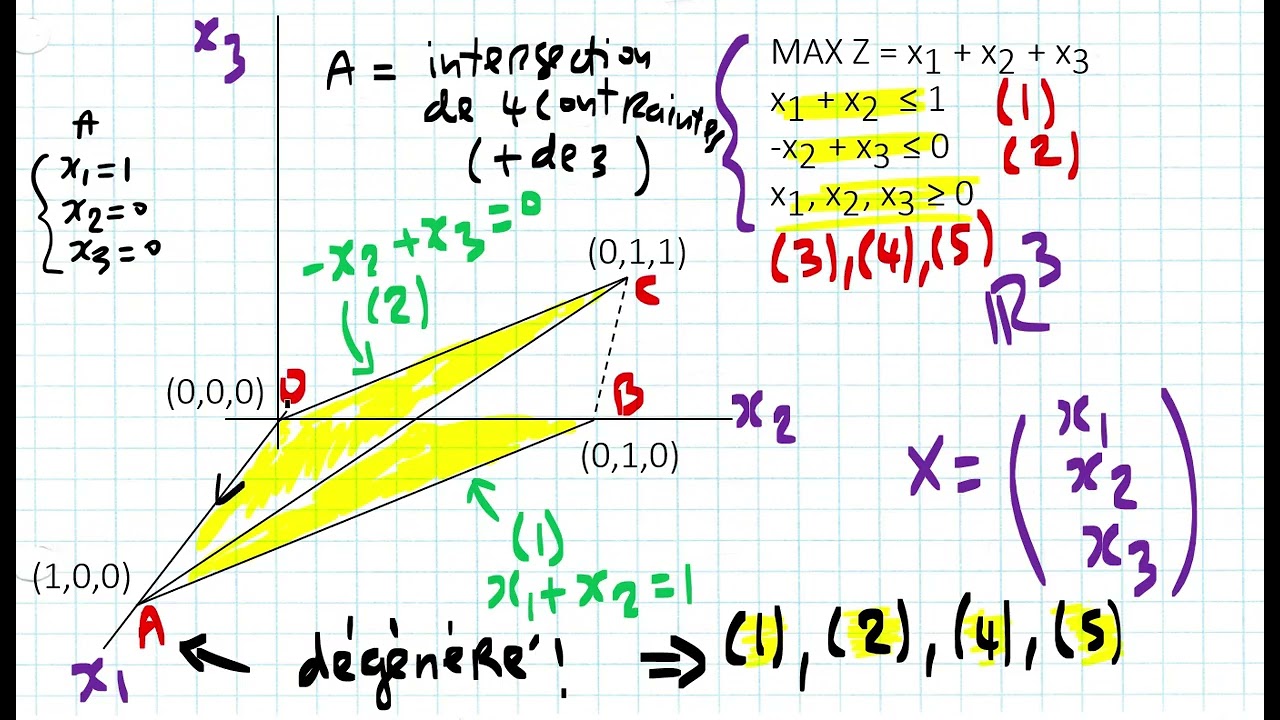 x3
A = intersection
de 4 contraintes
(+ de 3)
MAX Z = x1 + x2 + x3
x1 + x2 ≤ 1 (1)
-x2 + x3 ≤ 0 (2)
x1, x2, x3 ≥ 0
(3), (4), (5)
ℝ³
A
x1 = 1
x2 = 0
x3 = 0
-x2 + x3 = 0
(2)
(0,1,1)
C
(0,0,0)
O
B
x2
(0,1,0)
X = (x1
x2
x3)
(1)
x1 + x2 = 1
(1,0,0)
A
x1
← dégénéré! ⇒ (1), (2), (4), (5)